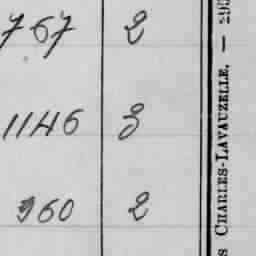 767 2
1146 3
960 2
CHARLES-LAVAUZELLE. — 293